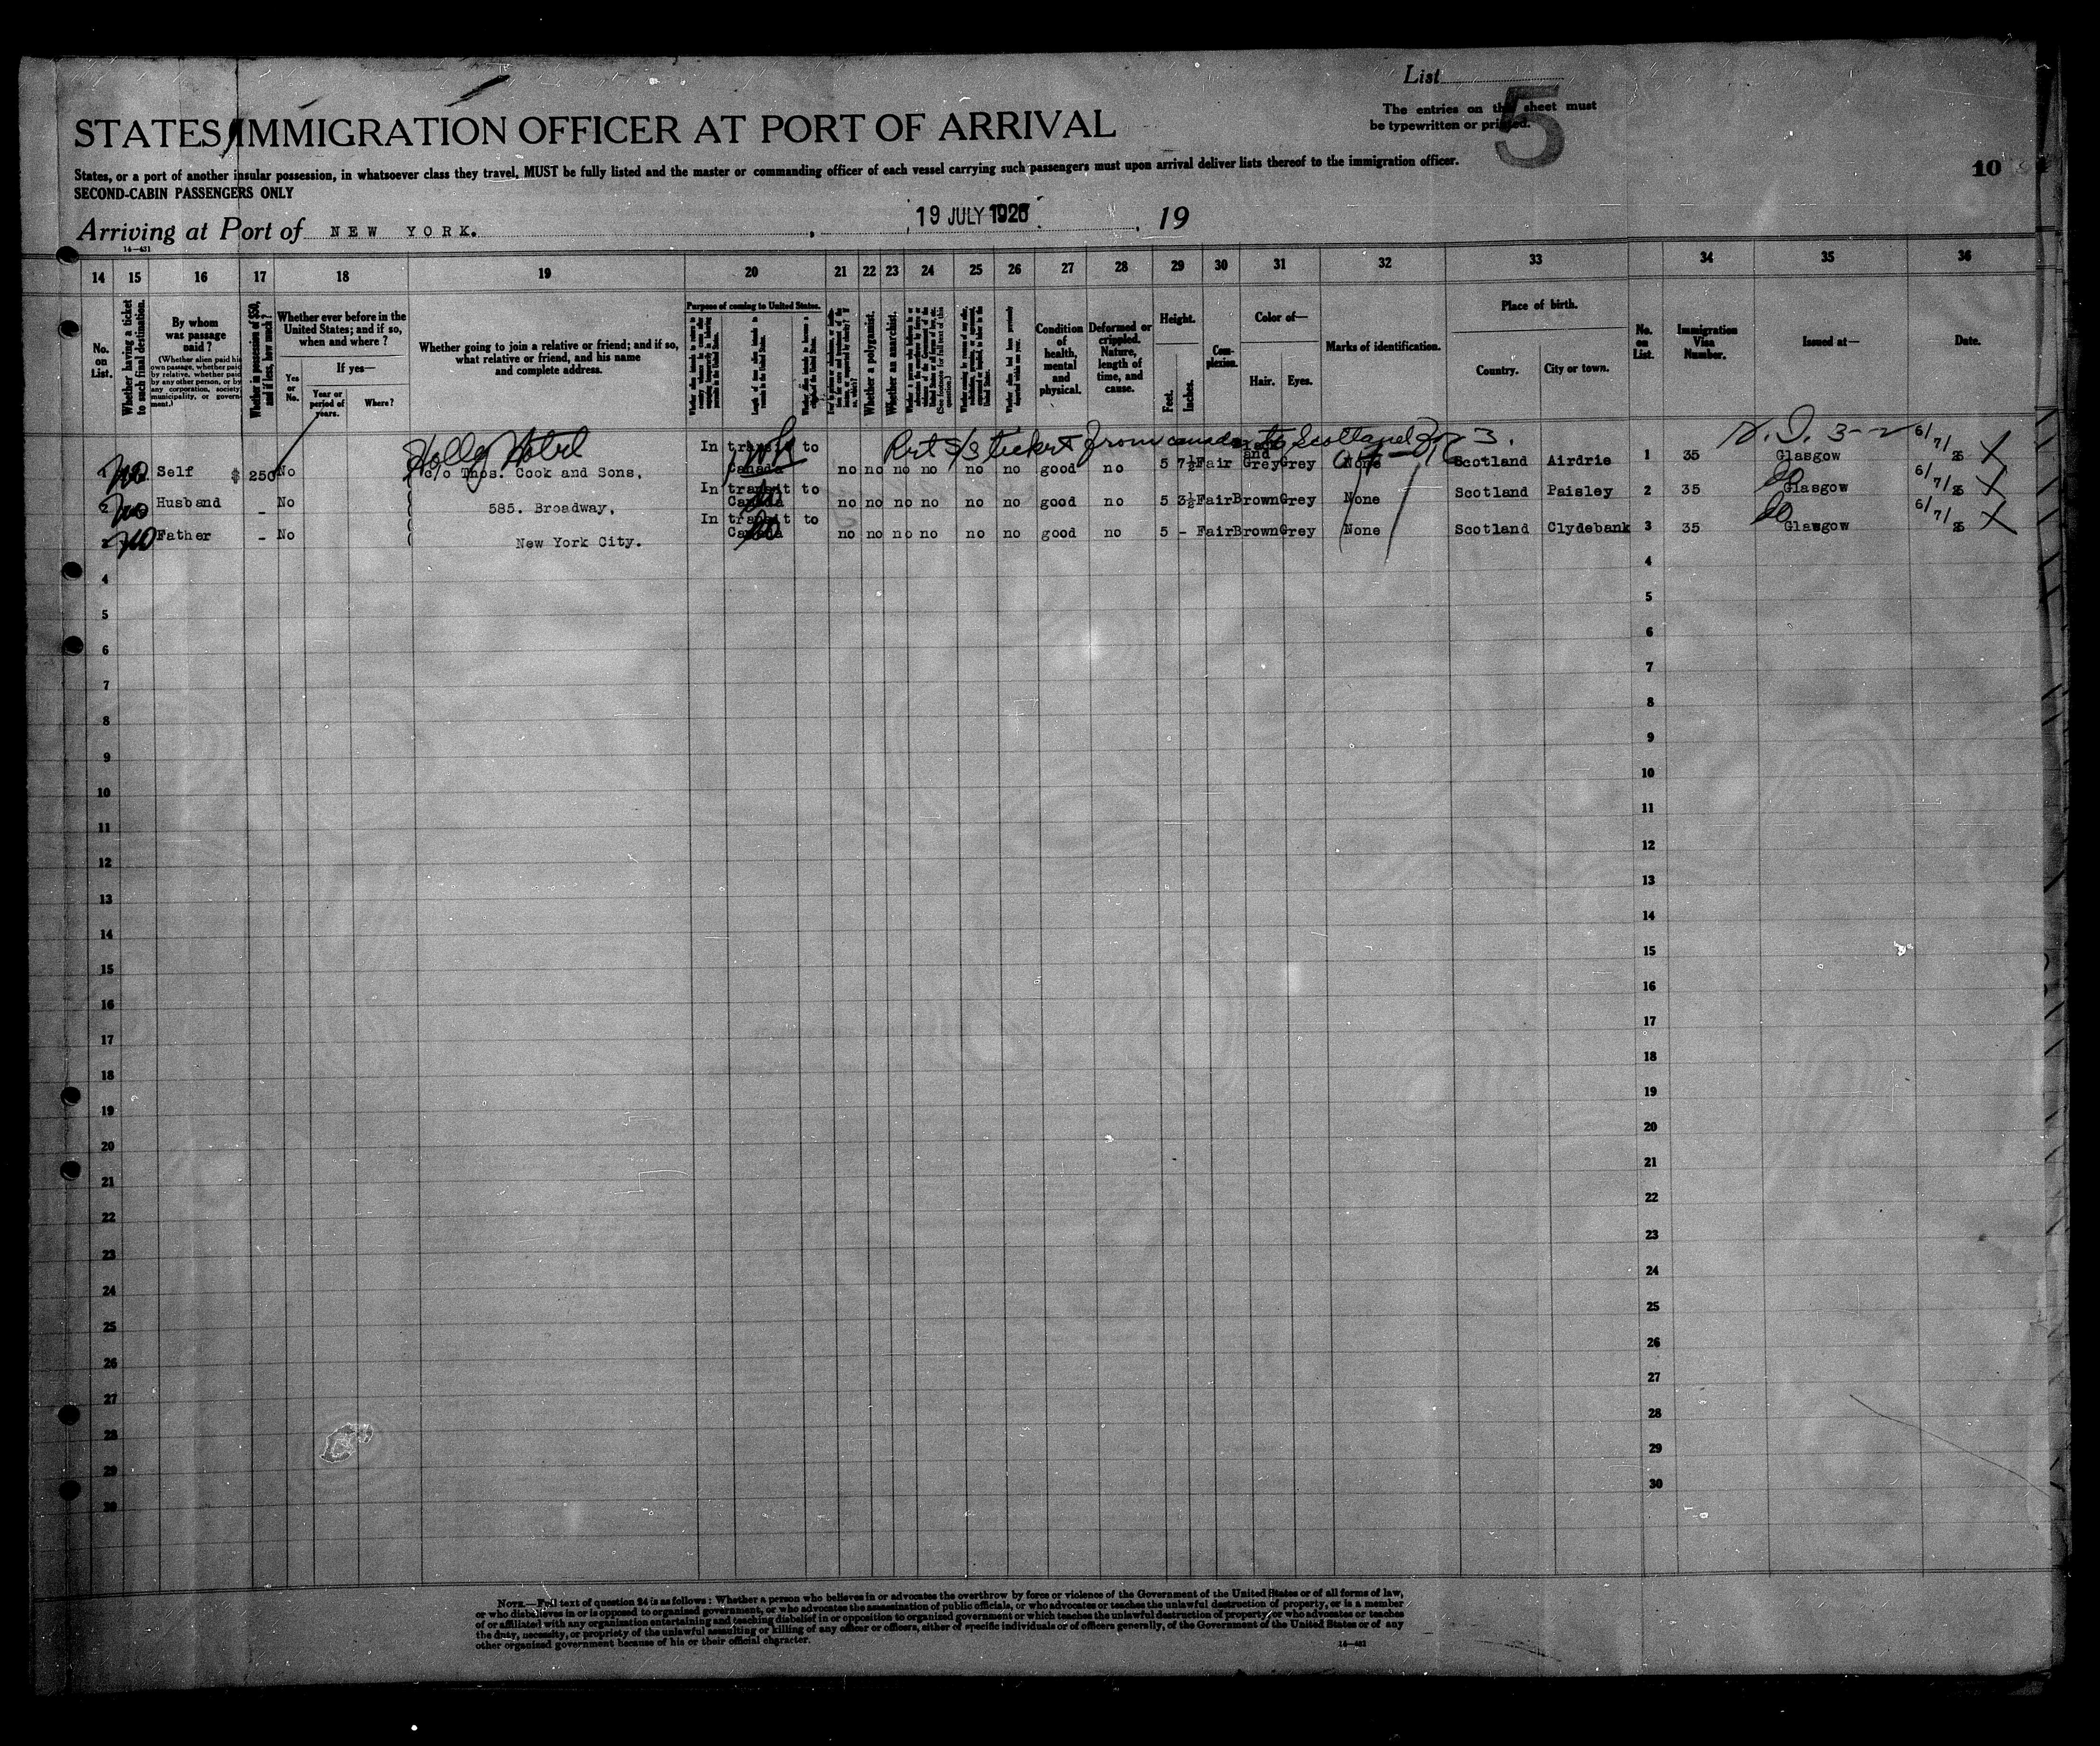 List
The entries on this sheet must
be typewritten or printed.
5
STATES IMMIGRATION OFFICER AT PORT OF ARRIVAL
States, or a port of another insular possession, in whatsoever class they travel, MUST be fully listed and the master or commanding officer of each vessel carrying such passengers must upon arrival deliver lists thereof to the immigration officer.
10
SECOND-CABIN PASSENGERS ONLY
Arriving at Port of NEW YORK. , 19 JULY 1926 , 19
14—431
14 15 16 17 18 19 20 21 22 23 24 25 26 27 28 29 30 31 32 33 34 35 36
No. on List.
Whether having a ticket to such final destination.
By whom was passage paid?
(Whether alien paid his own passage, whether paid by relative, whether paid by any other person, or by any corporation, society, municipality, or government.)
Whether in possession of $50, and if less, how much?
Whether ever before in the United States; and if so, when and where?
Yes or No.
If yes—
Year or period of years.
Where?
Whether going to join a relative or friend; and if so, what relative or friend, and his name and complete address.
Purpose of coming to United States.
Length of time alien intends to remain in the United States.
Whether a polygamist.
Whether an anarchist.
Condition of health, mental and physical.
Deformed or crippled. Nature, length of time, and cause.
Height.
Feet. Inches.
Complexion.
Color of—
Hair. Eyes.
Marks of identification.
Place of birth.
Country. City or town.
No. on List.
Immigration Visa Number.
Issued at—
Date.
Holly Hotel
Ret S/S ticket from Canada to Scotland
1 no Self $ 250 No c/o Thos. Cook and Sons, In transit to Canada no no no no no no good no 5 7½ Fair and Grey Grey None Scotland Airdrie 1 35 Glasgow 6/7/26
2 no Husband - No 585. Broadway, In transit to Canada no no no no no no good no 5 3½ Fair Brown Grey None Scotland Paisley 2 35 do Glasgow 6/7/26
3 no Father - No New York City. In transit to Canada no no no no no no good no 5 - Fair Brown Grey None Scotland Clydebank 3 35 do Glasgow 6/7/26
4 4
5 5
6 6
7 7
8 8
9 9
10 10
11 11
12 12
13 13
14 14
15 15
16 16
17 17
18 18
19 19
20 20
21 21
22 22
23 23
24 24
25 25
26 26
27 27
28 28
29 29
30 30
NOTE.—Full text of question 24 is as follows: Whether a person who believes in or advocates the overthrow by force or violence of the Government of the United States or of all forms of law,
or who disbelieves in or is opposed to organized government, or who advocates the assassination of public officials, or who advocates or teaches the unlawful destruction of property, or is a member
of or affiliated with any organization entertaining and teaching disbelief in or opposition to organized government or which teaches the unlawful destruction of property, or who advocates or teaches
the duty, necessity, or propriety of the unlawful assaulting or killing of any officer or officers, either of specific individuals or of officers generally, of the Government of the United States or of any
other organized government because of his or their official character.
14—431